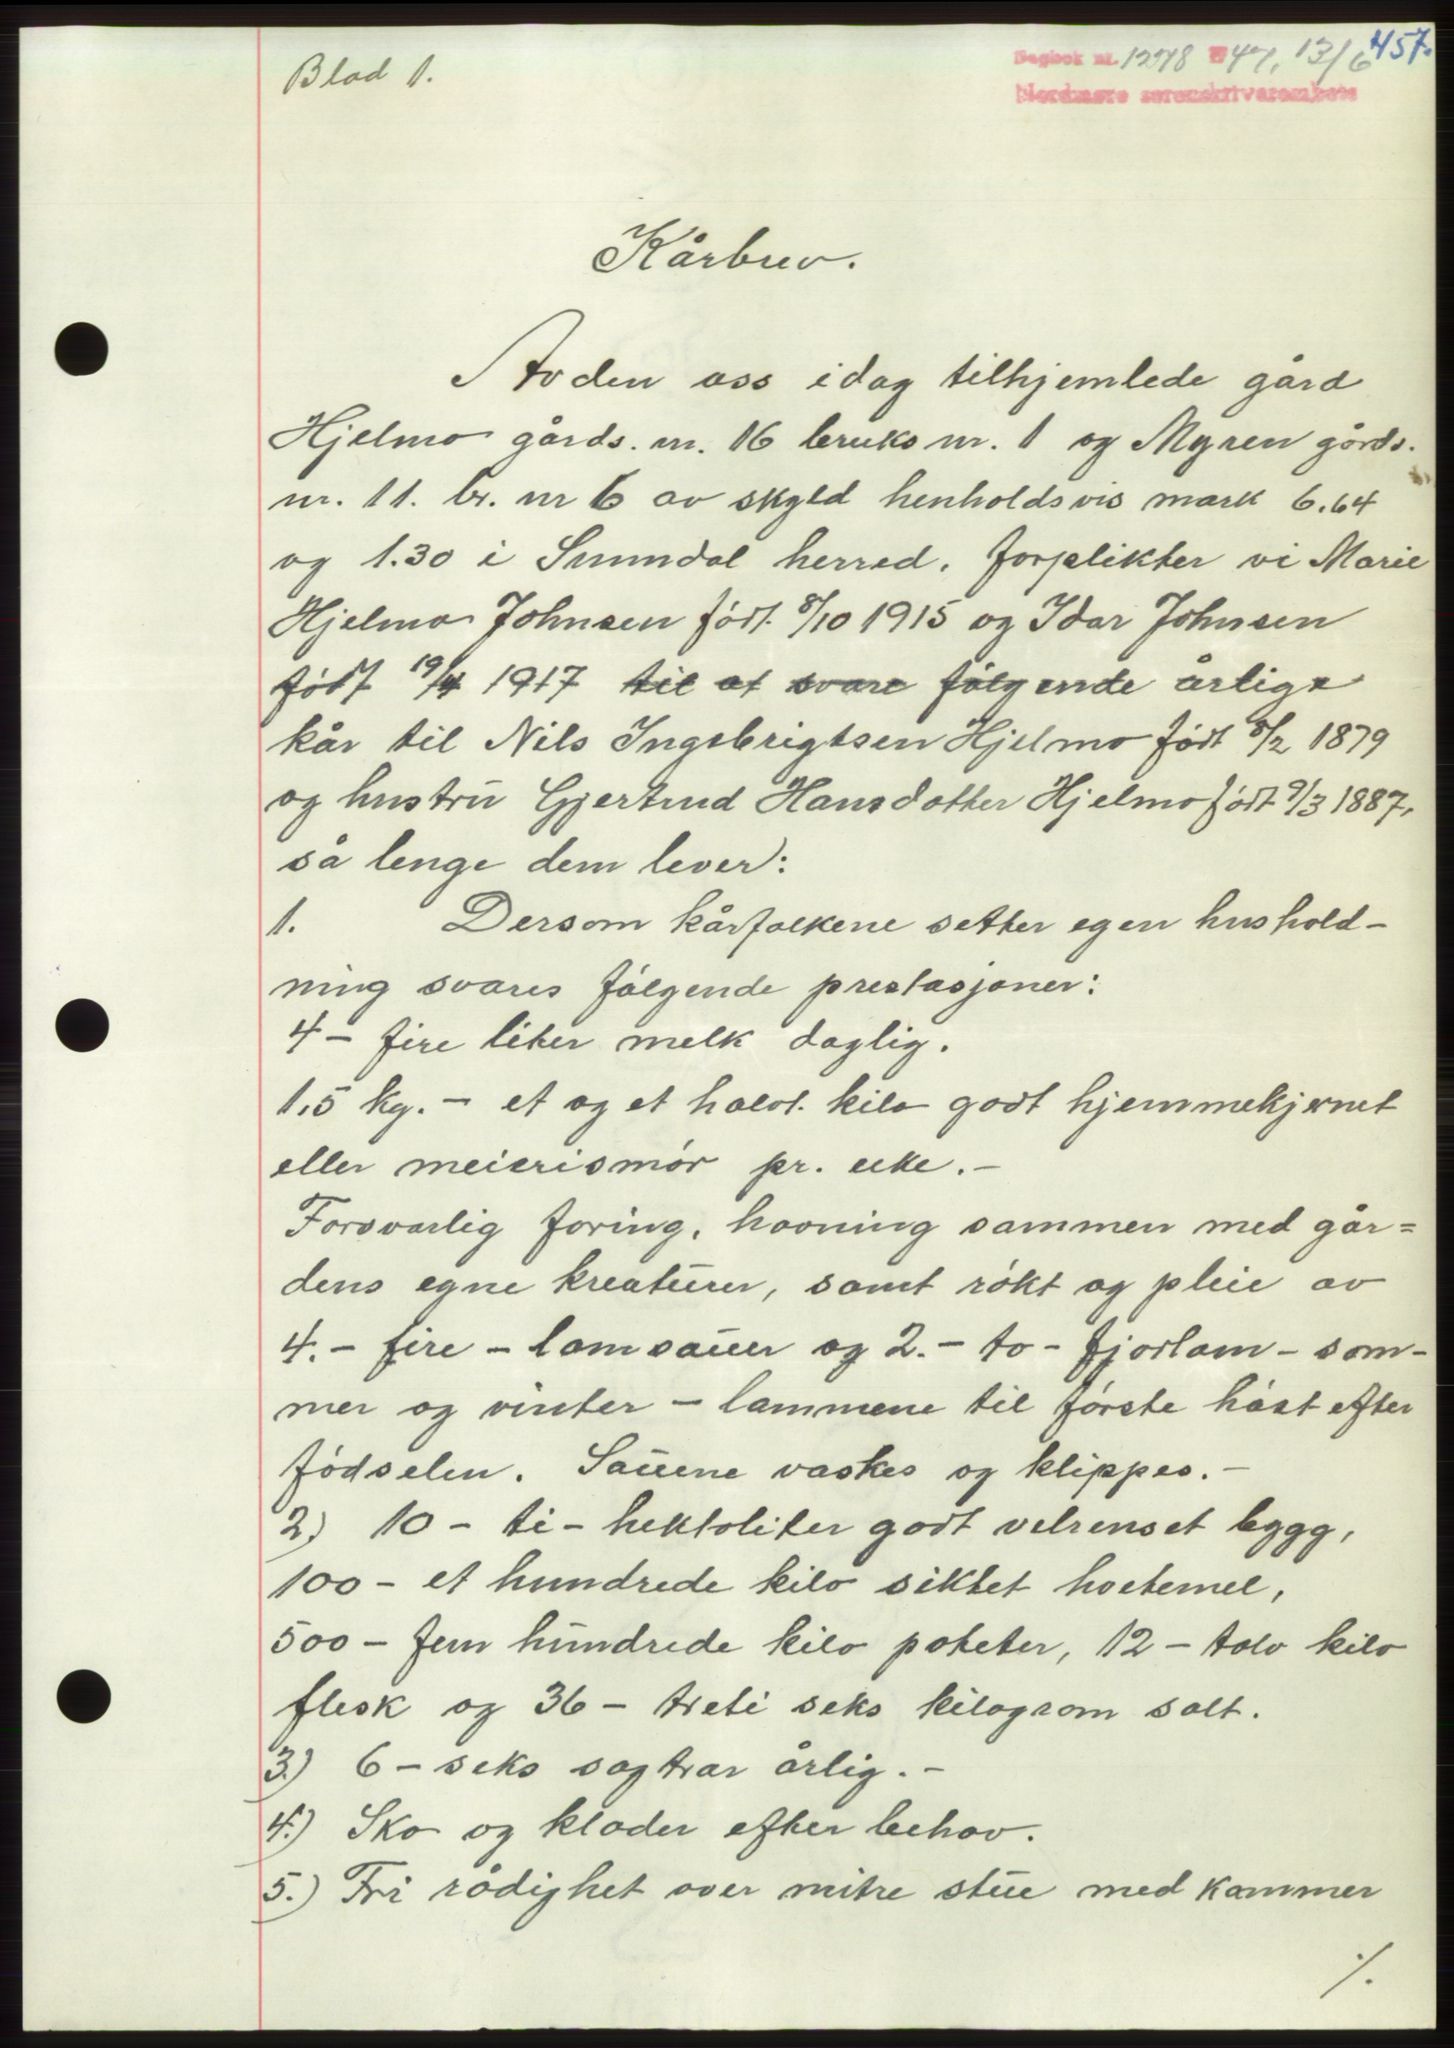 Blad 1.
Dagbok nr. 1278 1947, 13/6
457.
Nordmøre sorenskriverembete
Kårbrev.
Av den oss idag tilhjemlede gård
Hjelmo gårds. nr. 16 bruks nr. 1 og Myren gårds.
nr. 11. br. nr 6 av skyld henholdsvis mark 6.64
og 1.30 i Sunndal herred, forplikter vi Marie
Hjelmo Johnsen født 8/10 1915 og Idar Johnsen
født 19/4 1917 til at svare følgende årlige
kår til Nils Ingebrigtsen Hjelmo født 8/2 1879
og hustru Gjertrud Hansdotter Hjelmo født 9/3 1887,
så lenge dem lever:
1. Dersom kårfolkene setter egen hushold-
ning svares følgende prestasjoner:
4 - fire liter melk daglig.
1,5 kg. - et og et halvt kilo godt hjemmekjernet
eller meierismør pr. uke. -
Forsvarlig foring, havning sammen med går=
dens egne kreaturer, samt røkt og pleie av
4. - fire - lamsauer og 2. - to - fjorlam - som-
mer og vinter - lammene til første høst efter
fødselen. Sauene vaskes og klippes. -
2.) 10 - ti - hektoliter godt velrenset bygg,
100 - et hundrede kilo siktet hvetemel,
500 - fem hundrede kilo poteter, 12 - tolv kilo
flesk og 36 - treti seks kilogram salt.
3.) 6 - seks sagtrær årlig. -
4.) Sko og klæder efter behov.
5.) Fri rådighet over mitre stue med kammer
./.